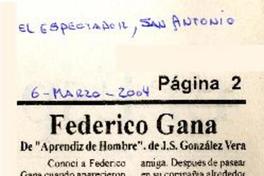 EL ESPECTADOR, SAN ANTONIO
6-MARZO-2004
Página 2
Federico Gana
De "Aprendiz de Hombre". de J.S. González Vera
Conocí a Federico
Gana cuando aparecieron
amiga. Después de pasear
en su compañía alrededor